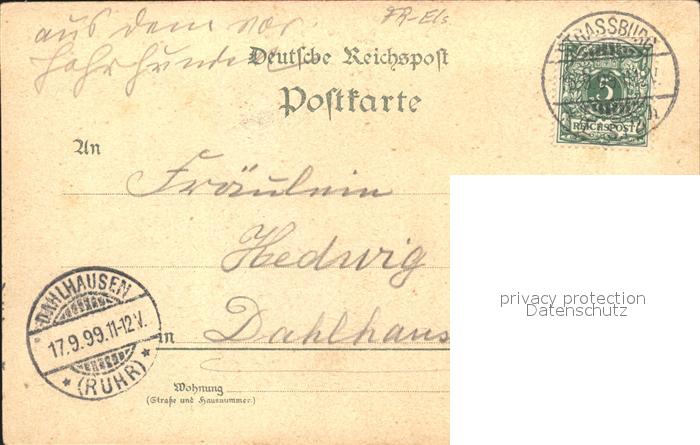 aus dem vor.
Jahrhundert
FR-Els
Deutsche Reichspost
Postkarte
STRASSBURG
5
REICHSPOST
An
Fräulein
Hedwig
in Dahlhaus
DAHLHAUSEN
17.9.99.11-12V.
* (RUHR) *
Wohnung
(Straße und Hausnummer.)
privacy protection
Datenschutz